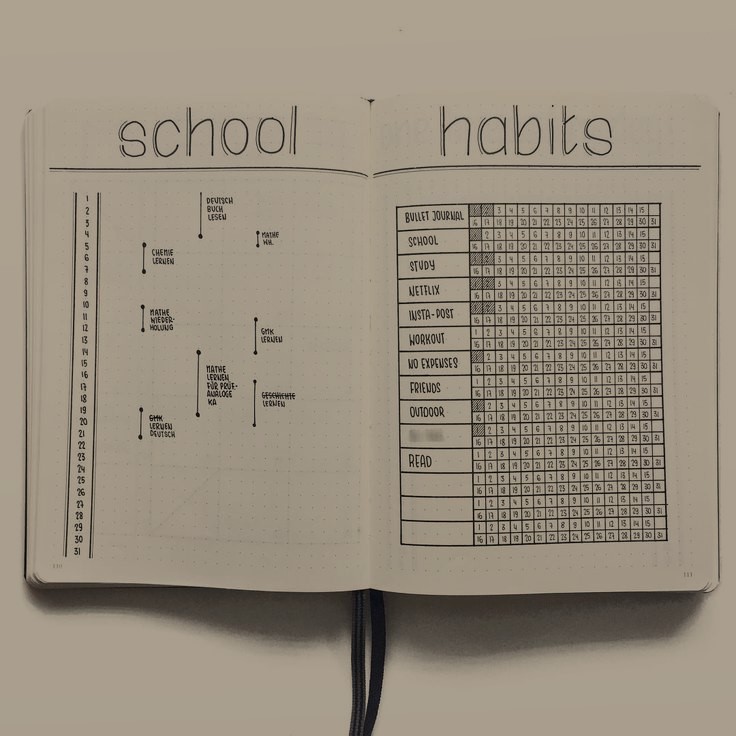 school
1
2
3
4
5
6
7
8
9
10
11
12
13
14
15
16
17
18
19
20
21
22
23
24
25
26
27
28
29
30
31
DEUTSCH
BUCH
LESEN
MATHE
WH.
CHEMIE
LERNEN
MATHE
WIEDER-
HOLUNG
GMK
LERNEN
MATHE
LERNEN
FÜR PRÜF-
ANALOGE
KA
GESCHICHTE
LERNEN
GMK
LERNEN
DEUTSCH
habits
BULLET JOURNAL 3 4 5 6 7 8 9 10 11 12 13 14 15
16 17 18 19 20 21 22 23 24 25 26 27 28 29 30 31
SCHOOL 2 3 4 5 6 7 8 9 10 11 12 13 14 15
16 17 18 19 20 21 22 23 24 25 26 27 28 29 30 31
STUDY 3 4 5 6 7 8 9 10 11 12 13 14 15
16 17 18 19 20 21 22 23 24 25 26 27 28 29 30 31
NETFLIX 3 4 5 6 7 8 9 10 11 12 13 14 15
16 17 18 19 20 21 22 23 24 25 26 27 28 29 30 31
INSTA-POST 3 4 5 6 7 8 9 10 11 12 13 14 15
16 17 18 19 20 21 22 23 24 25 26 27 28 29 30 31
WORKOUT 1 2 3 4 5 6 7 8 9 10 11 12 13 14 15
16 17 18 19 20 21 22 23 24 25 26 27 28 29 30 31
NO EXPENSES 2 3 4 5 6 7 8 9 10 11 12 13 14 15
16 17 18 19 20 21 22 23 24 25 26 27 28 29 30 31
FRIENDS 1 2 3 4 5 6 7 8 9 10 11 12 13 14 15
16 17 18 19 20 21 22 23 24 25 26 27 28 29 30 31
OUTDOOR 2 3 4 5 6 7 8 9 10 11 12 13 14 15
16 17 18 19 20 21 22 23 24 25 26 27 28 29 30 31
2 3 4 5 6 7 8 9 10 11 12 13 14 15
16 17 18 19 20 21 22 23 24 25 26 27 28 29 30 31
READ 1 2 3 4 5 6 7 8 9 10 11 12 13 14 15
16 17 18 19 20 21 22 23 24 25 26 27 28 29 30 31
1 2 3 4 5 6 7 8 9 10 11 12 13 14 15
16 17 18 19 20 21 22 23 24 25 26 27 28 29 30 31
1 2 3 4 5 6 7 8 9 10 11 12 13 14 15
16 17 18 19 20 21 22 23 24 25 26 27 28 29 30 31
1 2 3 4 5 6 7 8 9 10 11 12 13 14 15
16 17 18 19 20 21 22 23 24 25 26 27 28 29 30 31